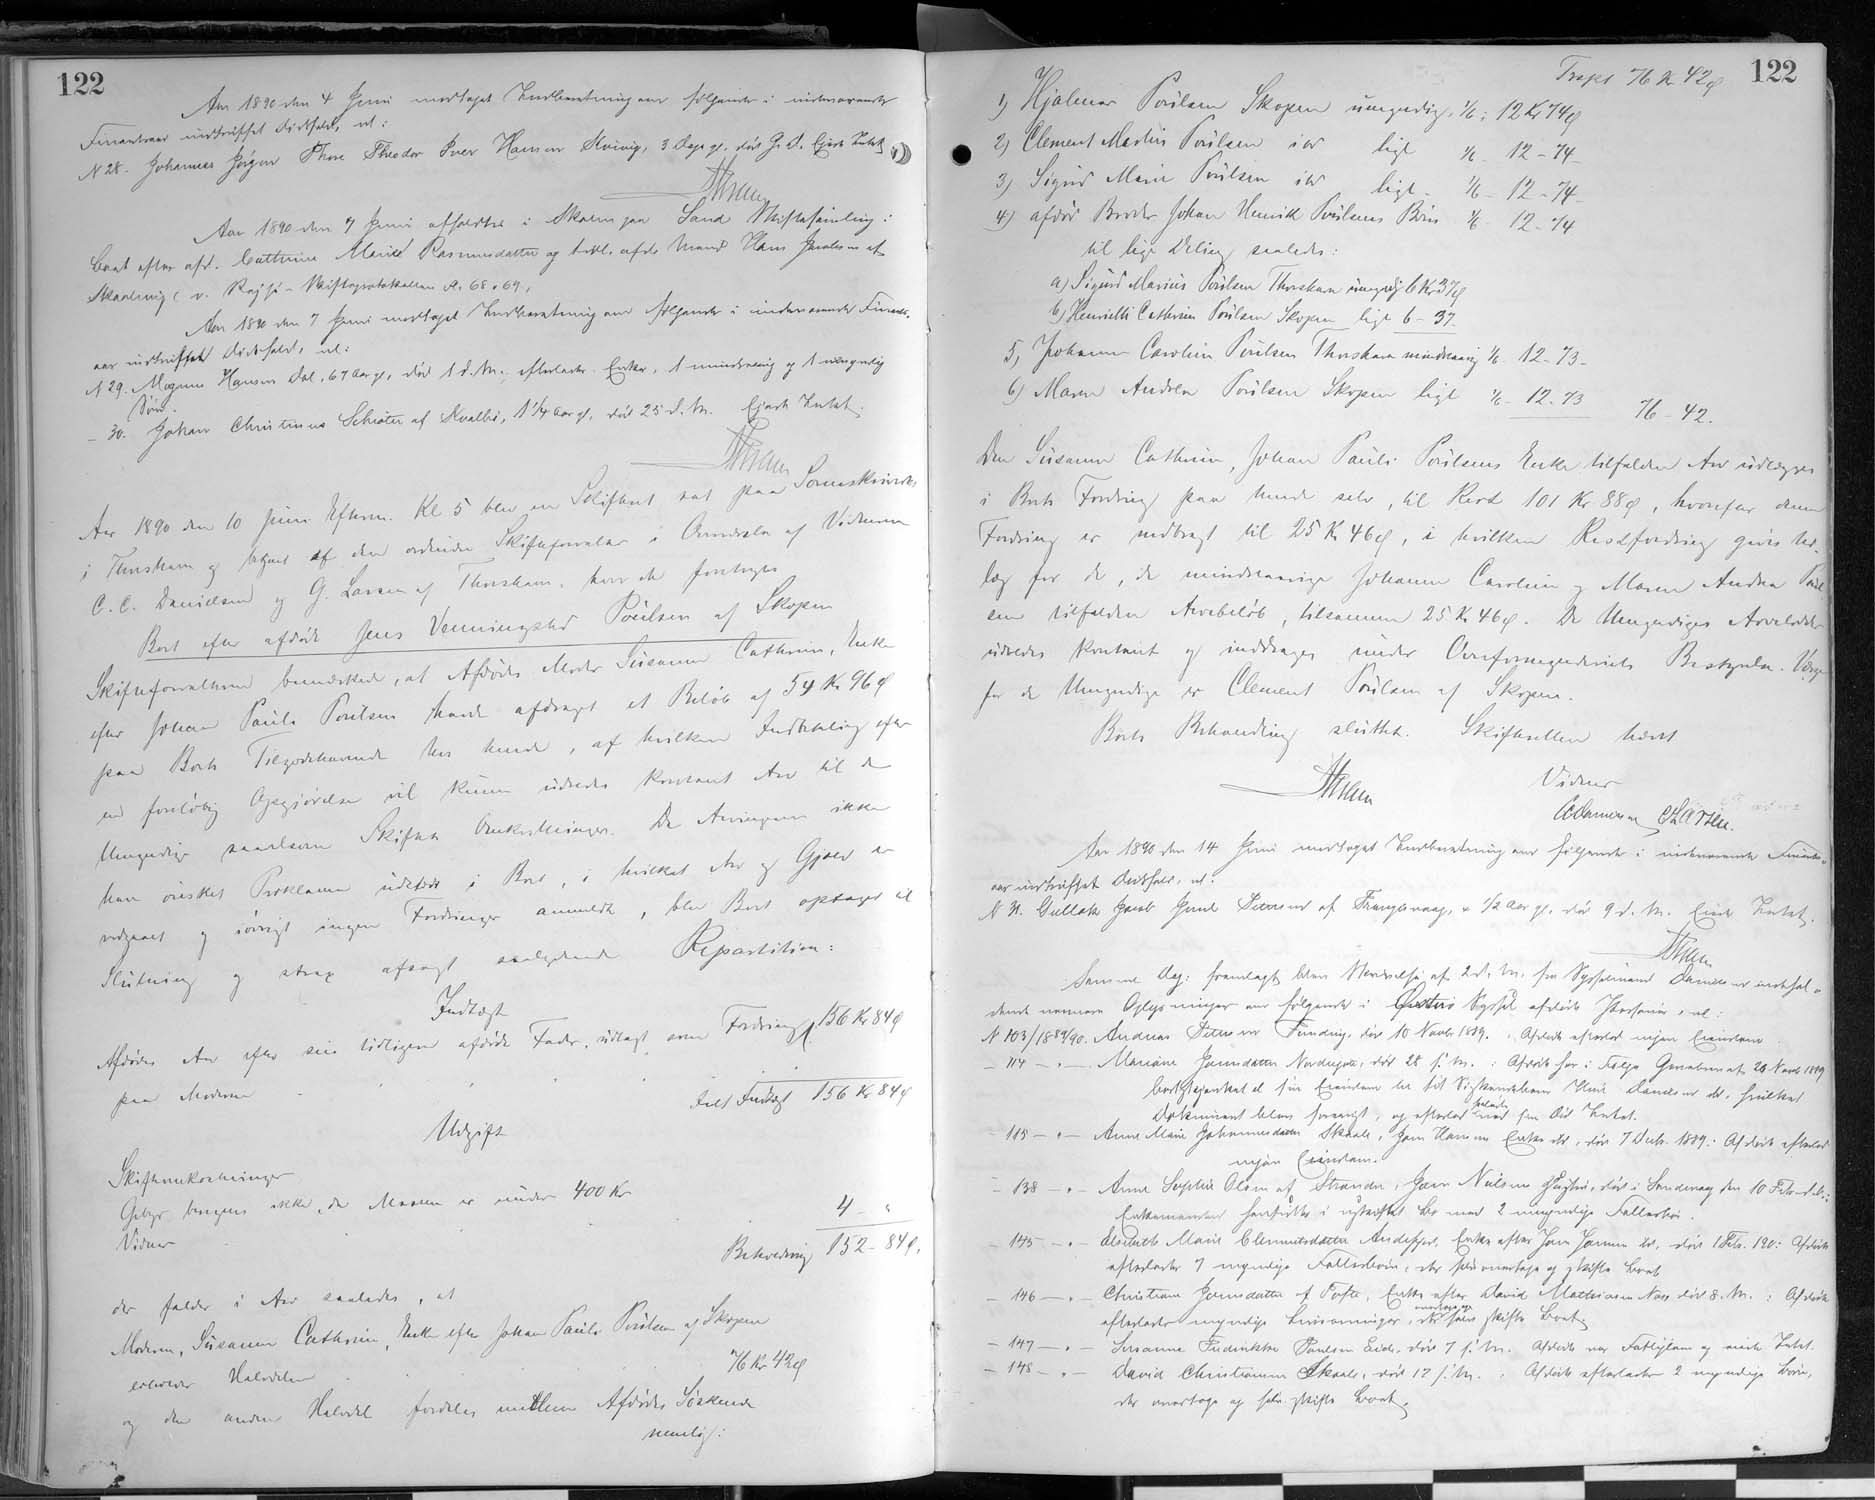 122
Aar 1890 den 4 Juni modtaget Indberetning om følgende i indeværende
Finantsaar indtruffet Dødsfald, nl:
N 28. Johannes Jørgen Thore Theodor Iver Hansen Kvivig, 3 Dage gl. død G. D. Ejede Intet
Aar 1890 den 7 Juni afholdtes i Skaalen paa Sand Skiftesamling i
Boet efter afd. Cathrine Marie Rasmusdatter og tidl. afdøde Mand Hans Jacobsen af
Skaalevig (v. Rejse-Skifteprotokollen S. 68 & 69.
Aar 1890 den 7 Juni modtaget Indberetning om følgende i indeværende Finants-
aar indtruffet Dødsfald, nl:
N 29. Magnus Hansen Dal, 67 Aar gl, død 1 d. M., efterlader Enke, 1 mindreaarig og 1 umyndig
Søn.
- 30. Johan Christinus Schrøter af Kvalbø, 1 1/4 Aar gl, død 25 d. M. Ejede Intet.
Aar 1890 den 10 Juni Efterm. Kl 5 blev en Skifteret sat paa Sorenskriveriet
i Thorshavn og betjent af den ordinære Skifteforvalter i Overværelse af Vidnerne
C. C. Danielsen og G. Larsen af Thorshavn, hvor da foretoges
Boet efter afdøde Jens Venningsted Poulsen af Skopen
Skifteforvalteren bemærkede, at Afdødes Moder Susanne Cathrine, Enke
efter Johan Pauli Poulsen havde afdraget et Beløb af 54 Kr 96 Ø
paa Boets Tilgodehavende hos hende, af hvilken Indbetaling efter
en foreløbig Opgjørelse vil kunne udredes kontant Arv til de
Umyndige saavelsom Skiftets Omkostninger. Da Arvingerne ikke
have ønsket Proklama udstedt i Boet, i hvilket Arv og Gjæld er
vedgaaet og iøvrigt ingen Fordringer anmeldt, blev Boet optaget til
Slutning og strax afsagt saalydende Repartition:
Indtægt
Afdødes Arv efter sin tidligere afdøde Fader, udlagt som Fordring 156 Kr 84 Ø
paa Moderen
Hele Indtægt 156 Kr 84 Ø
Udgift
Skifteomkostninger
Gebyr beregnes ikke, da Massen er under 400 Kr
Vidner 4 - "
Beholdning 152 - 84 Ø.
der falder i Arv saaledes, at
Moderen, Susanne Cathrine, Enke efter Johan Pauli Poulsen af Skopen
erholder Halvdelen 76 Kr 42 Ø
og den anden Halvdel fordeles mellem Afdødes Søskende
nemlig:
122
Trspt 76 Kr 42 Ø
1) Hjalmar Poulsen Skopen umyndig, 1/6: 12 Kr 74 Ø
2) Clement Martin Poulsen ibd ligl 1/6 - 12 - 74 -
3) Sigrid Marie Poulsen ibd ligl - 1/6 - 12 - 74 -
4) afdød Broder Johan Henrik Poulsens Børn 1/6 - 12 - 74
til lige Deling saaledes:
a) Sigurd Marius Poulsen Thorshavn umyndig 6 Kr 37 Ø
b) Henriette Cathrine Poulsen Skopen ligl 6 - 37
5) Johanne Caroline Poulsen Thorshavn mindreaarig 1/6 - 12 - 73 -
6) Maren Andrea Poulsen Skopen ligl 1/6 - 12 - 73 76 - 42.
Den Susanne Cathrine, Johan Pauli Poulsens Enke tilfaldne Arv udlægges
i Boets Fordring paa hende selv, til Rest 101 Kr 88 Ø, hvorefter denne
Fordring er nedbragt til 25 Kr 46 Ø, i hvilken Restfordring gives Ud-
læg for de, de mindreaarige Johanne Caroline og Maren Andrea Poul
sen tilfaldne Arvebeløb, tilsammen 25 Kr 46 Ø. De Umyndiges Arvelodder
udredes kontant og inddrages under Overformynderiets Bestyrelse. Værge
for de Umyndige er Clement Poulsen af Skopen.
Boets Behandling sluttet. Skifteretten hævet
Vidner
Aar 1890 den 14 Juni modtaget Indberetning om følgende i indeværende Finants-
aar indtruffet Dødsfald, nl:
N 31. Gullak Jacob Petersen af Frangsvaag, 1/2 Aar gl, død 9 d. M. Ejede Intet.
Samme Dag: fremlagdes Skrivelse af 2 d. M. fra Sysselmand Danielsen indehol-
dende nærmere Oplysninger om følgende i Østerø Syssel afdøde Personer, nl:
N 103/1889/90. Andreas Petersen Funding, død 10 Novb 1889. Afdøde efterlod ingen Eiendom
- 114 - " - Mariane Joensdatter Nordregøte, død 28 f. M.: Afdøde har i Følge Gavebrev af 20 Novb 1889
bortskjænket al sin Eiendom til sit Søskendebarn Danielsen ibd, hvilket
Dokument blev forevist, og efterlod saaledes ved sin Død Intet.
- 115 - " - Anne Marie Johannesdatter Skaale, Joen Hansens Enke ibd, død 7 Decb. 1889: Afdøde efterlod
ingen Eiendom.
- 138 - " - Anne Sophie Olsen af Strænder, Joen Nielsens Hustru, død i Sandevaag den 10 Febr d. A.:
Enkemanden hensidder i uskiftet Bo med 2 umyndige Fællesbørn.
- 145 - " - Elsebeth Marie Clementsdatter Andefjord, Enke efter Joen Joensen ibd, død 1 Febr. 1890: Afdøde
efterlader 7 myndige Fællesbørn, der selv overtage og skifte Boet
- 146 - " - Christiane Joensdatter af Tofte, Enke efter David Mathiasen Næs død 8. M.: Afdøde
efterlader myndige Livsarvinger, der selv overtage og skifte Boet
- 147 - " - Susanne Fredrikke Poulsen Eide, død 7 f. M. Afdøde var Fattiglem og eiede Intet.
- 148 - " - David Christiansen Skaale, død 12 f. M.: Afdøde efterlader 2 myndige Børn,
der overtage og selv skifte Boet.